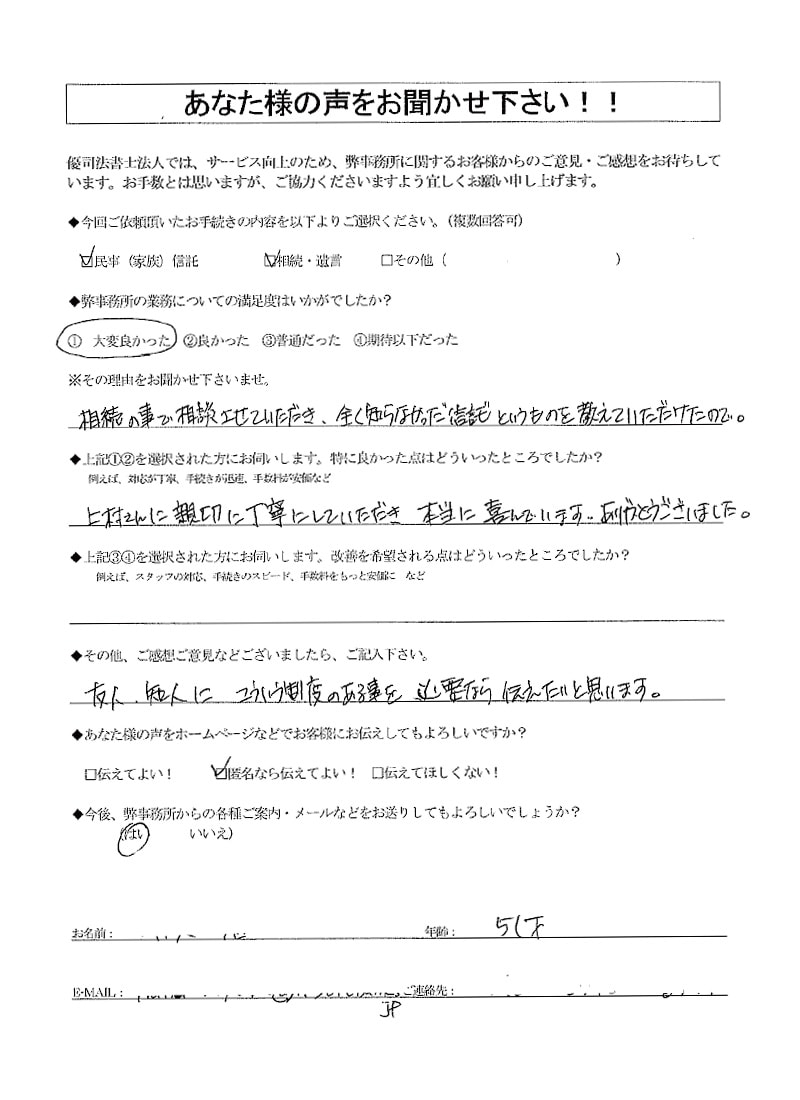 あなた様の声をお聞かせ下さい！！
優司法書士法人では、サービス向上のため、弊事務所に関するお客様からのご意見・ご感想をお待ちして
います。お手数とは思いますが、ご協力くださいますよう宜しくお願い申し上げます。
◆今回ご依頼頂いたお手続きの内容を以下よりご選択ください。（複数回答可）
☑民事（家族）信託 ☑相続・遺言 □その他（ ）
◆弊事務所の業務についての満足度はいかがでしたか？
① 大変良かった ②良かった ③普通だった ④期待以下だった
※その理由をお聞かせ下さいませ。
相続の事で相談させていただき、全く知らなかった信託というものを教えていただけたので。
◆上記①②を選択された方にお伺いします。特に良かった点はどういったところでしたか？
例えば、対応が丁寧、手続きが迅速、手数料が安価など
上村さんに親切に丁寧にしていただき 本当に喜んでいます。ありがとうございました。
◆上記③④を選択された方にお伺いします。改善を希望される点はどういったところでしたか？
例えば、スタッフの対応、手続きのスピード、手数料をもっと安価に など
◆その他、ご感想ご意見などございましたら、ご記入下さい。
友人、知人に こういう制度のある事を 必要なら 伝えたいと思います。
◆あなた様の声をホームページなどでお客様にお伝えしてもよろしいですか？
□伝えてよい！ ☑匿名なら伝えてよい！ □伝えてほしくない！
◆今後、弊事務所からの各種ご案内・メールなどをお送りしてもよろしいでしょうか？
（はい いいえ）
お名前： 年齢： 51才
E-MAIL： ご連絡先：
JP